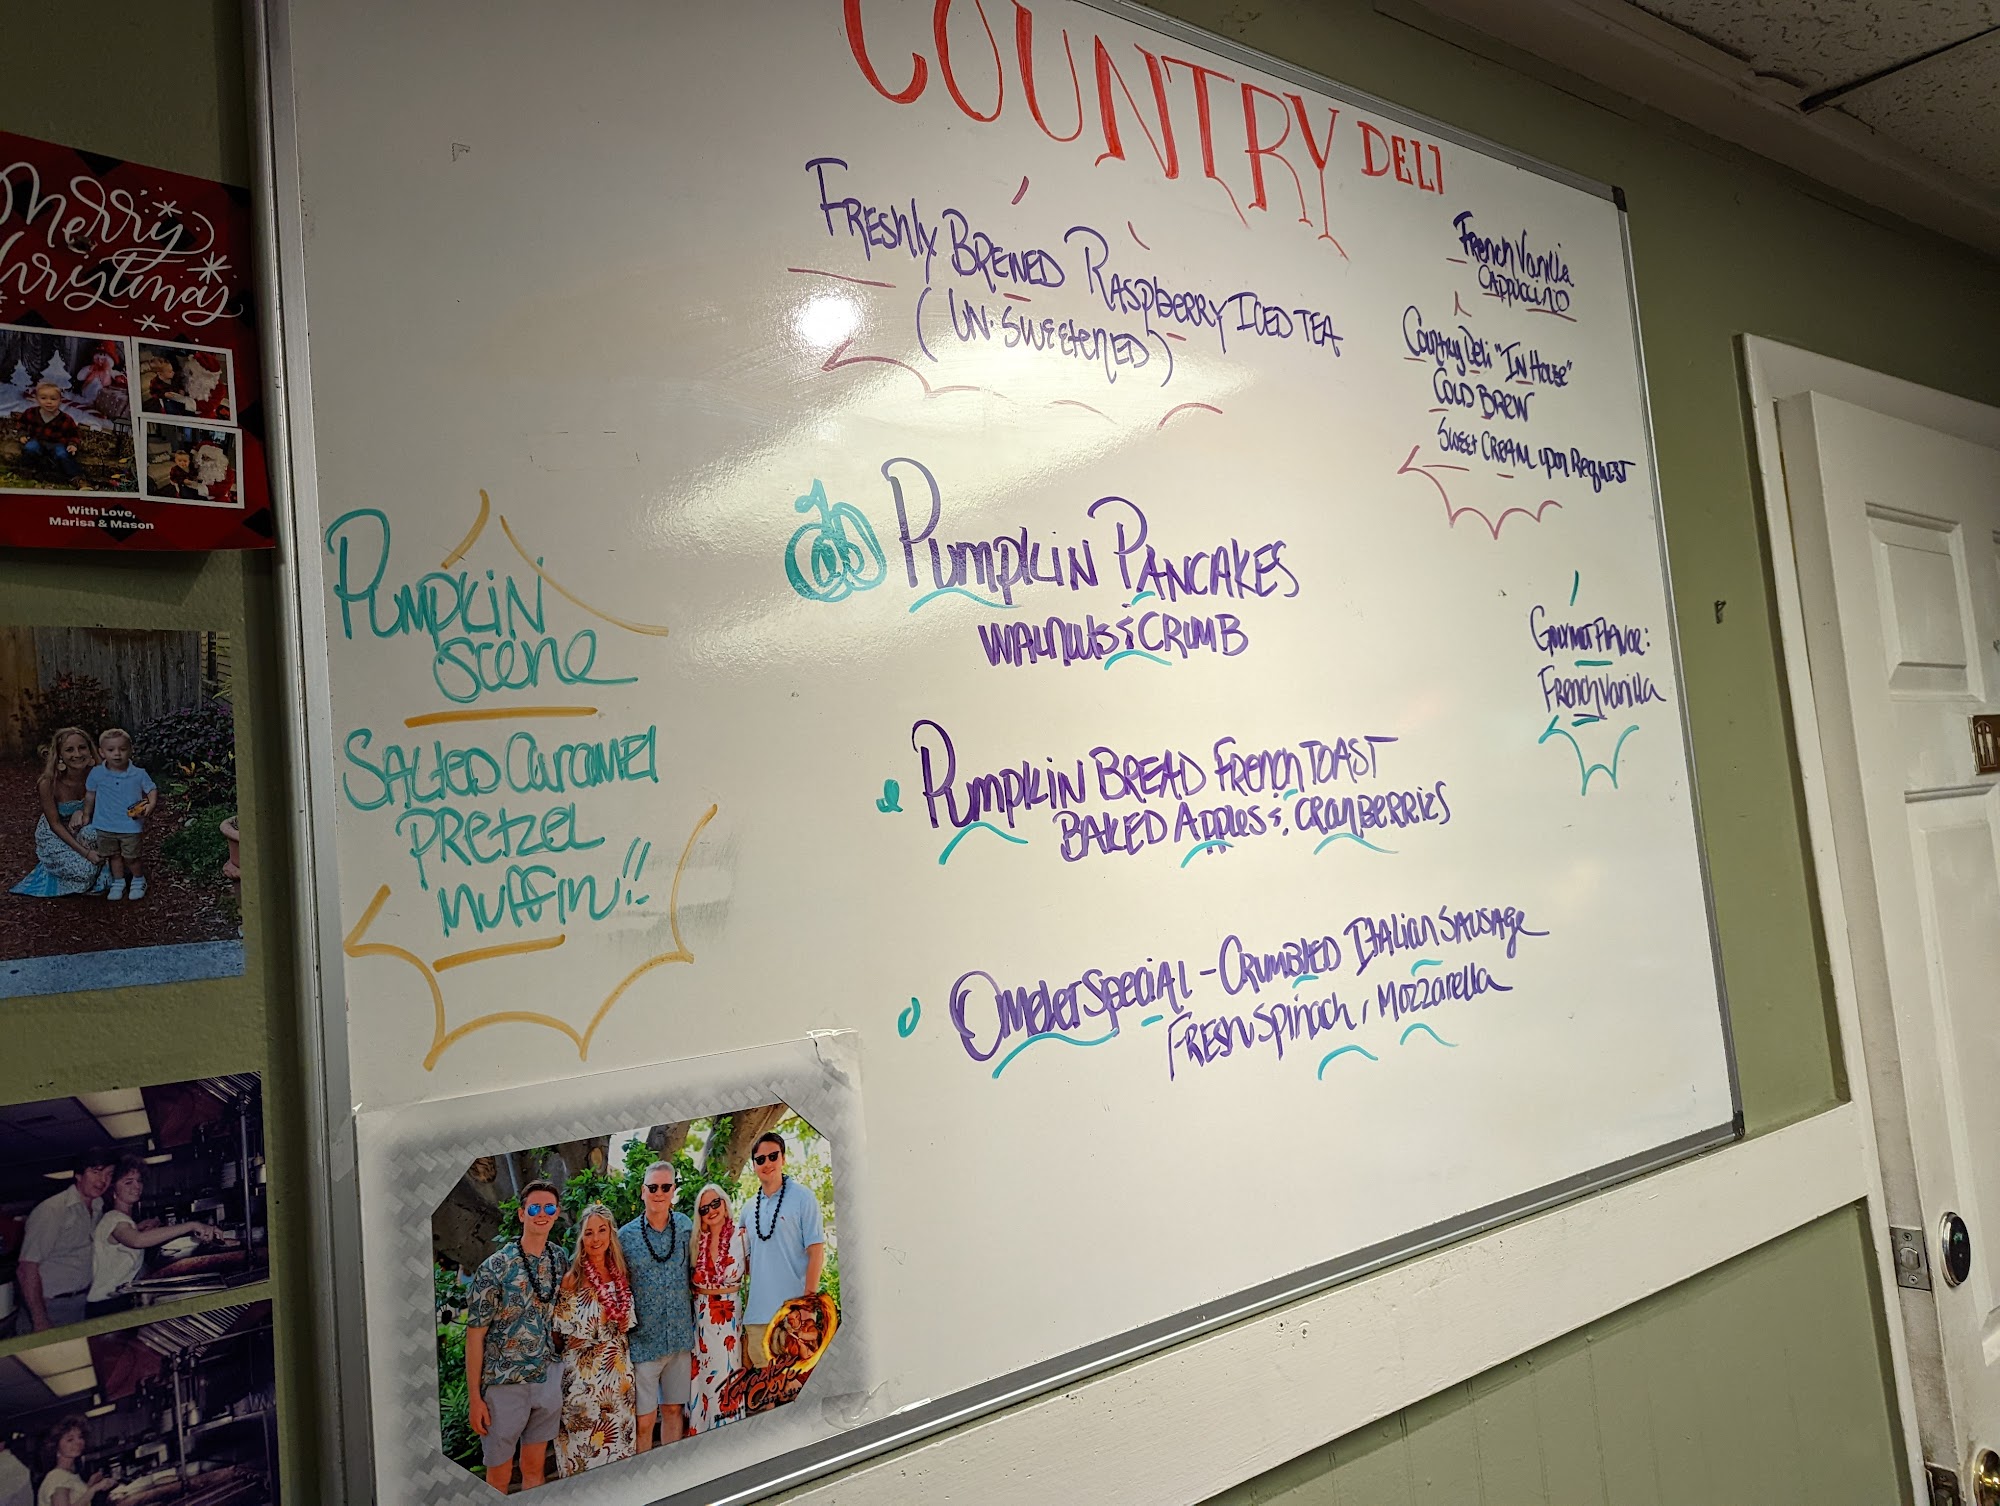 COUNTRY DELI
FRESHLY BREWED RASPBERRY ICED TEA
(UN-SWEETENED)
FRENCH VANILLA
CAPPUCCINO
COUNTRY DELI "IN HOUSE"
COLD BREW
SWEET CREAM UPON REQUEST
PUMPKIN PANCAKES
WALNUTS & CRUMB
GOURMET FLAVOR:
FRENCH VANILLA
PUMPKIN BREAD FRENCH TOAST
BAKED APPLES & CRANBERRIES
OMELET SPECIAL - CRUMBLED ITALIAN SAUSAGE
FRESH SPINACH, MOZZARELLA
PUMPKIN
SCENE
SALTED CARAMEL
PRETZEL
MUFFIN!!
Merry
Christmas
With Love,
Marisa & Mason
Paradise
Cove